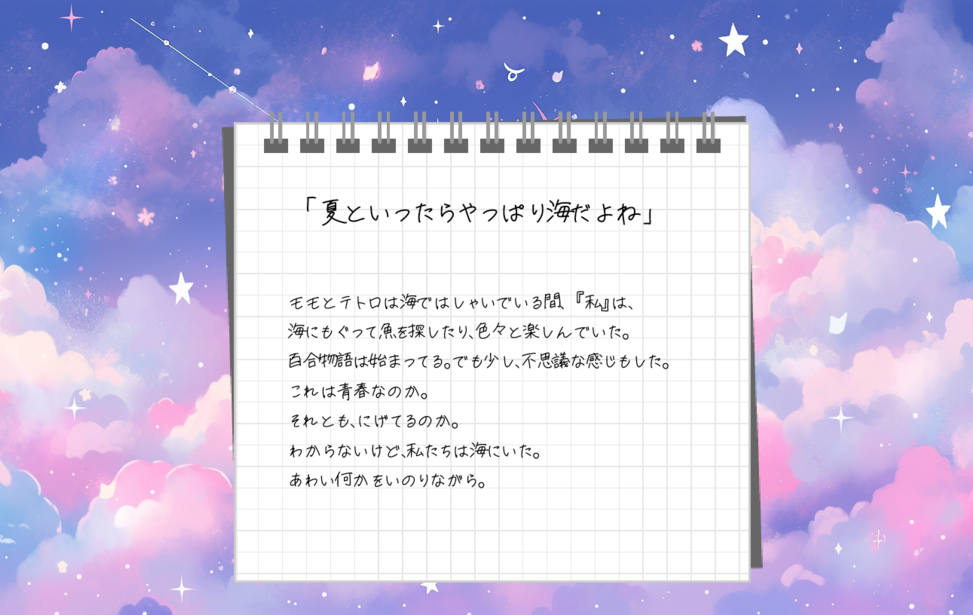 「夏といったらやっぱり海だよね」
モモとテトロは海ではしゃいでいる間、『私』は、
海にもぐって魚を探したり、色々と楽しんでいた。
百合物語は始まってる。でも少し、不思議な感じもした。
これは青春なのか。
それとも、にげてるのか。
わからないけど、私たちは海にいた。
あわい何かをいのりながら。